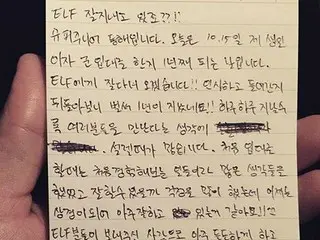 ELF 잘지내고 있죠??!!
슈퍼주니어 동해입니다. 오늘은 10.15일 제 생일
이자 군입대를 한지 1년째 되는 날입니다.
ELF에게 잘다녀 오겠습니다!! 인사하고 들어간지
뒤돌아보니 벌써 1년이 지났네요!! 하루하루 지날수
록 여러분들을 만난다는 생각에
설렐때가 많습니다. 처음 입대
할때는 처음 경험해보는 모든것이라 많은 생각들로
했었고 잘할수 있을까 걱정을 많이 했는데 이제는
상경이 되어 아주잘하고 있는거 같아요!!
ELF분들이 보내주신 사랑으로 아주 든든하게 하고